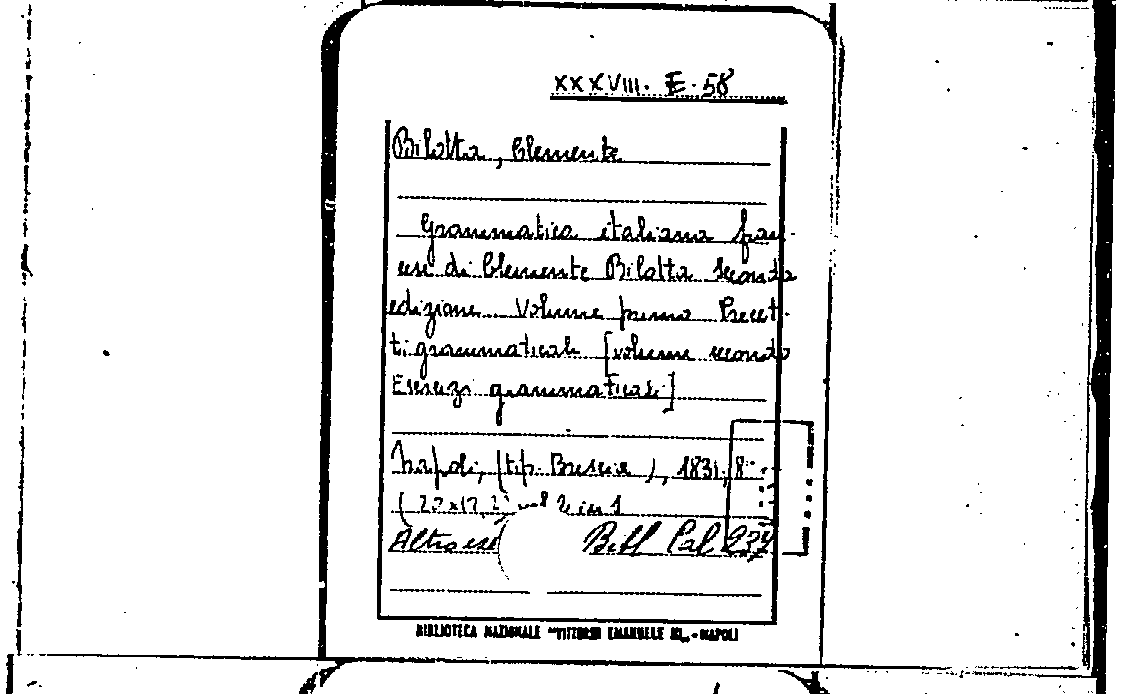 XXXVIII. E. 58
Bilotta, Clemente
Grammatica italiana fran
cese di Clemente Bilotta seconda
edizione Volume primo Precet-
ti grammaticali [volume secondo
Esercizi grammaticali]
Napoli, (tip. ), 1831, 8°
vol 2 in 1
Altro es Bibl Pal
BIBLIOTECA NAZIONALE "VITTORIO EMANUELE III" - NAPOLI